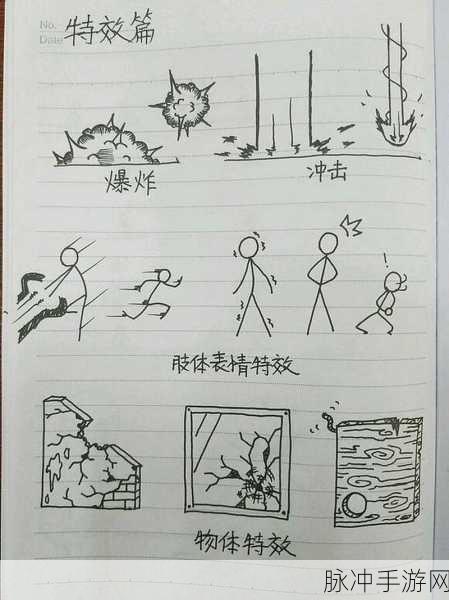 No.
Date
特效篇
爆炸
冲击
!
肢体表情特效
物体特效
脉冲手游网